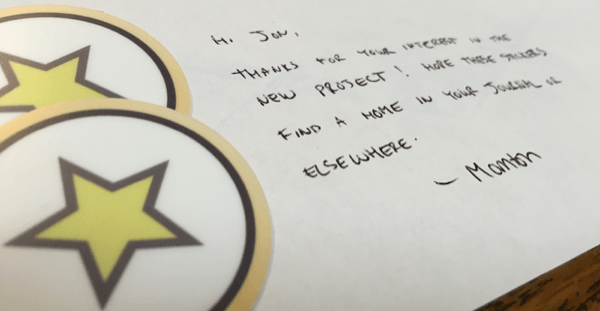 Hi Jon,
THANKS FOR YOUR INTEREST IN THE
NEW PROJECT! HOPE THESE STICKERS
FIND A HOME IN YOUR JOURNAL OR
ELSEWHERE.
— Manton